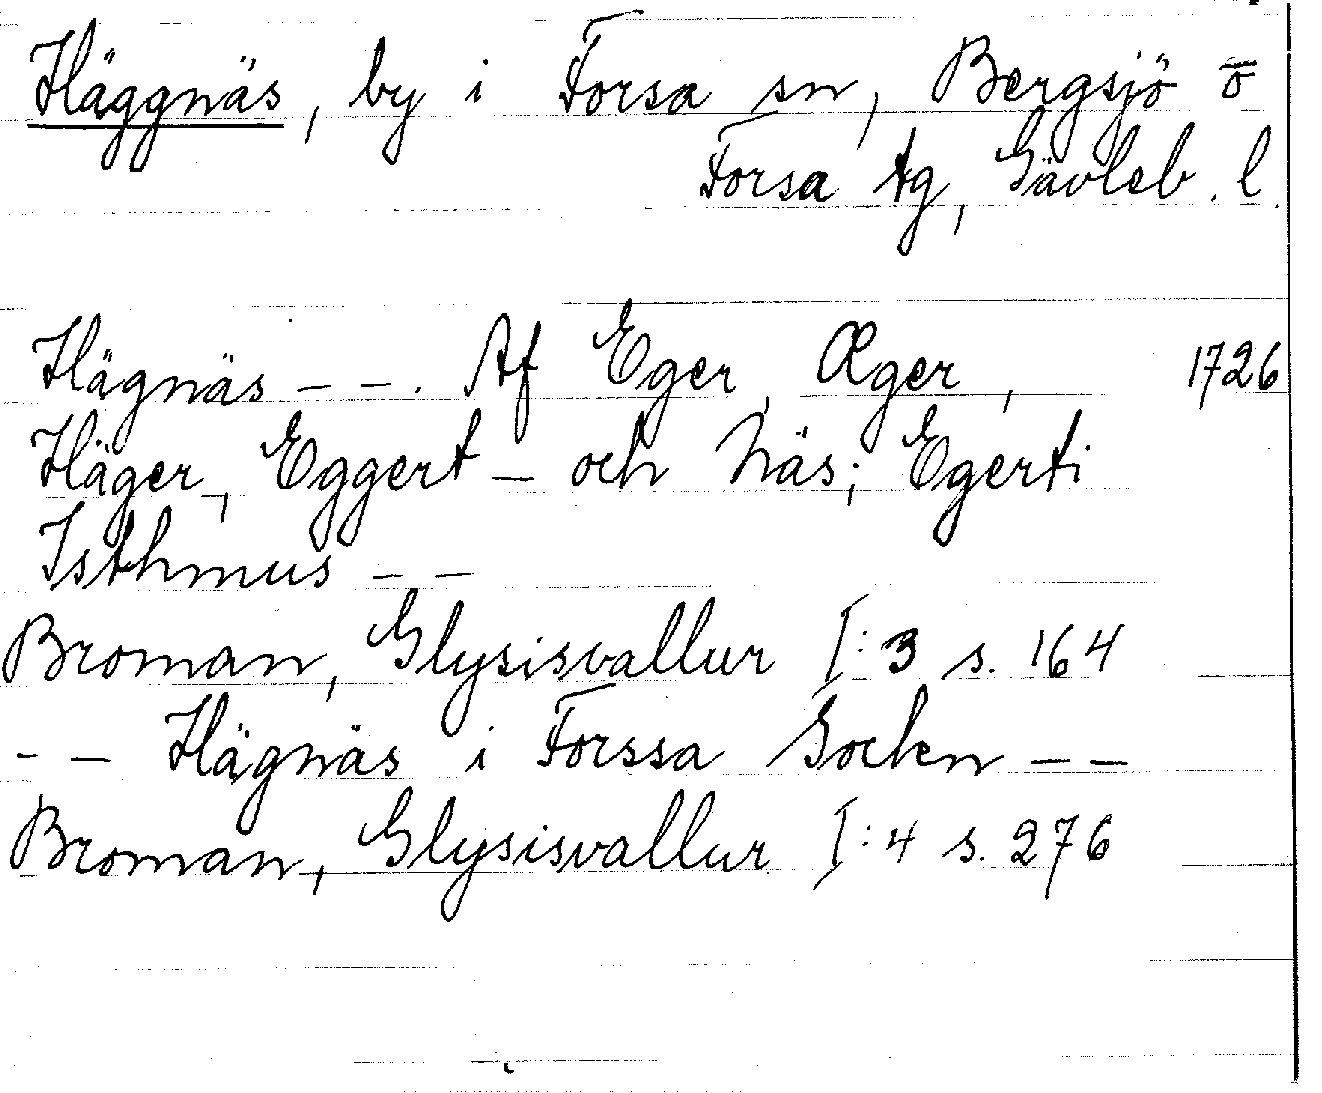 Häggnäs, by i Forsa sn, Bergsjö o̅
Forsa tg, Gävleb. l.
Hägnäs – – . Af Eger, Æger, 1726
Häger, Eggert – och Näs; Egerti
Isthmus – –
Broman, Glysisvallur I:3 s. 164
– – Hägnäs i Forssa Socken – –
Broman, Glysisvallur I:4 s. 276